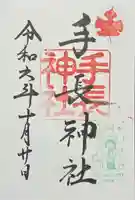 手長神社
手長
神社
令和六年十月廿日